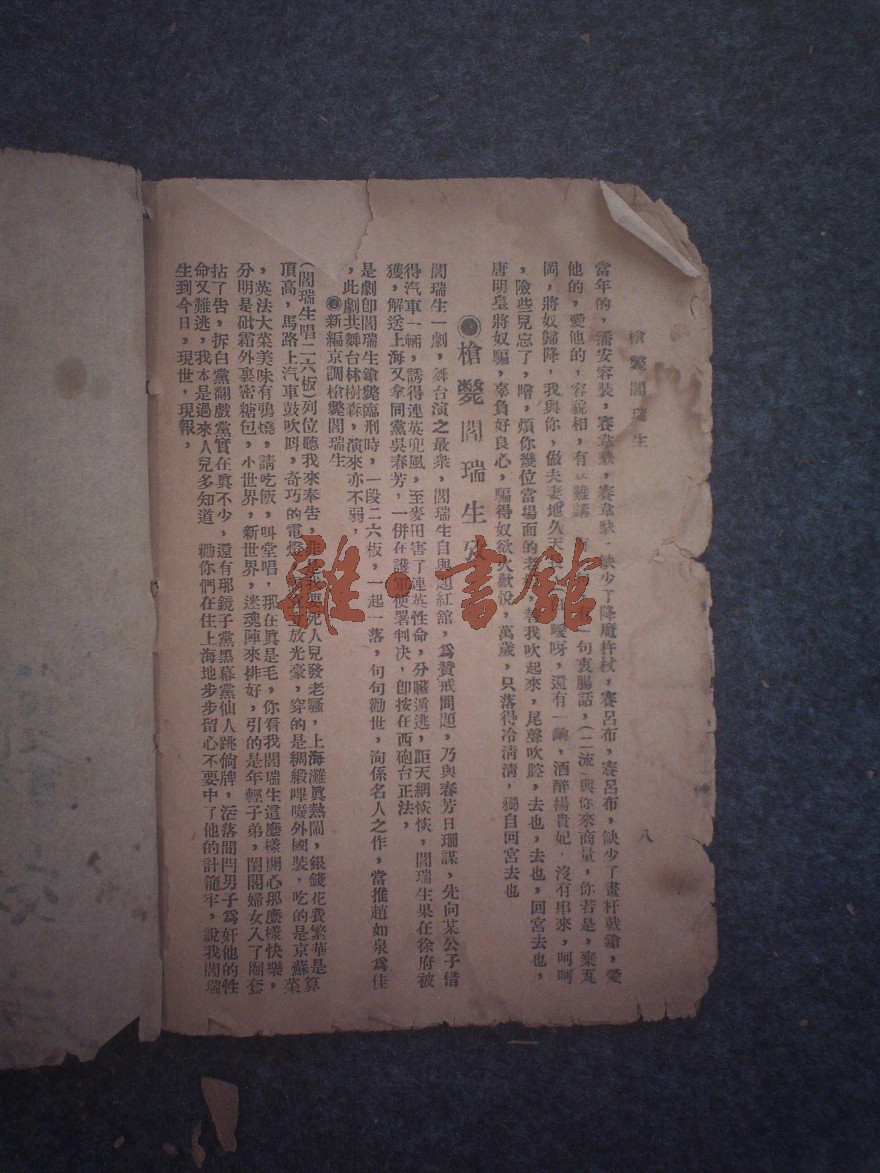 槍斃閻瑞生
八
當年的,潘安容裝,賽韋馱,賽韋馱,缺少了降魔杵杖,賽呂布,賽呂布,缺少了畫杆戟鎗,愛
他的,愛他的,容貌相,有 難講 一句衷腸話,(二流)與你來商量,你若是,棄瓦
岡,將奴歸降,我與你,做夫妻地久天 噯呀,還有一齣,酒醉楊貴妃,沒有串來,呵呵
,險些兒忘了,噲,煩你幾位當場面的老 着我吹起來,尾聲吹腔,去也,去也,回宮去也,
唐明皇將奴騙,辜負好良心,騙得奴欲火歡悅,萬歲,只落得冷清清,獨自回宮去也
槍斃閻瑞生
閻瑞生一劇,舞台演之最衆,閻瑞生自與題紅舘,爲贊戒問題,乃與春芳日珊謀,先向某公子借
得汽車一輛,誘得連英兜風,至麥田害了連英性命,分臟逃,詎天網恢恢,閻瑞生果在徐府被
獲,解送上海又拿同黨吳春芳,一併在護軍使署判决,卽按在西砲台正法,
是劇卽閻瑞生鎗斃臨刑時,一段二六板,一起一落,句句勸世,洵係名人之作,當推趙如泉爲佳
,此劇共舞台林樹森,演來亦不弱,
新編京調槍斃閻瑞生
(閻瑞生唱二六板)列位聽我來奉告,非是我要死人兒發老騷,上海灘眞熱鬧,銀錢花費繁華是算
頂高,馬路上汽車鼓吹呌,奇巧的電燈 放光豪,穿的是綢緞嗶嘰外國裝,吃的是京蘇菜
,英法大菜美味有鴉燒,請吃飯,叫堂唱,現在眞是毛,你看我閻瑞生這麽樣開心那麽樣快樂,
分明是砒霜外裹密糖包,小世界,新世界,迷魂陣來排好,引的是年輕子弟,閨閣婦女入了圈套
拈了告,拆白黨翻戲黨實在眞不少,還有那鏡子黨黑幕黨仙人跳倘牌,活落閒門男子爲奸他的性
命又難逃,我本是過來人兒多知道,勸你們在住上海地步步留心不要中了他的計籠牢,說我閻瑞
生到今日,現世,現報,
雜·書館